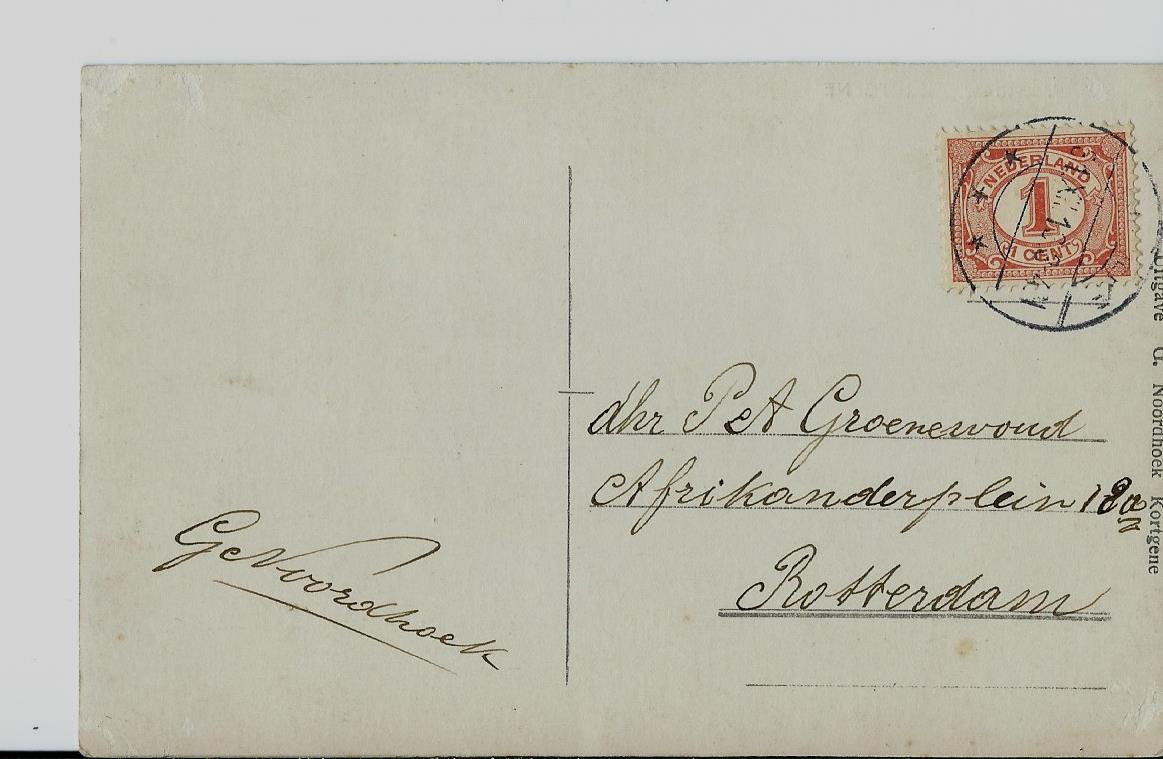 NEDERLAND
1
1 CENT
dhr P et A Groenewoud
Afrikanderplein 18a
Rotterdam
G Noordhoek
Uitgave G. Noordhoek Kortgene